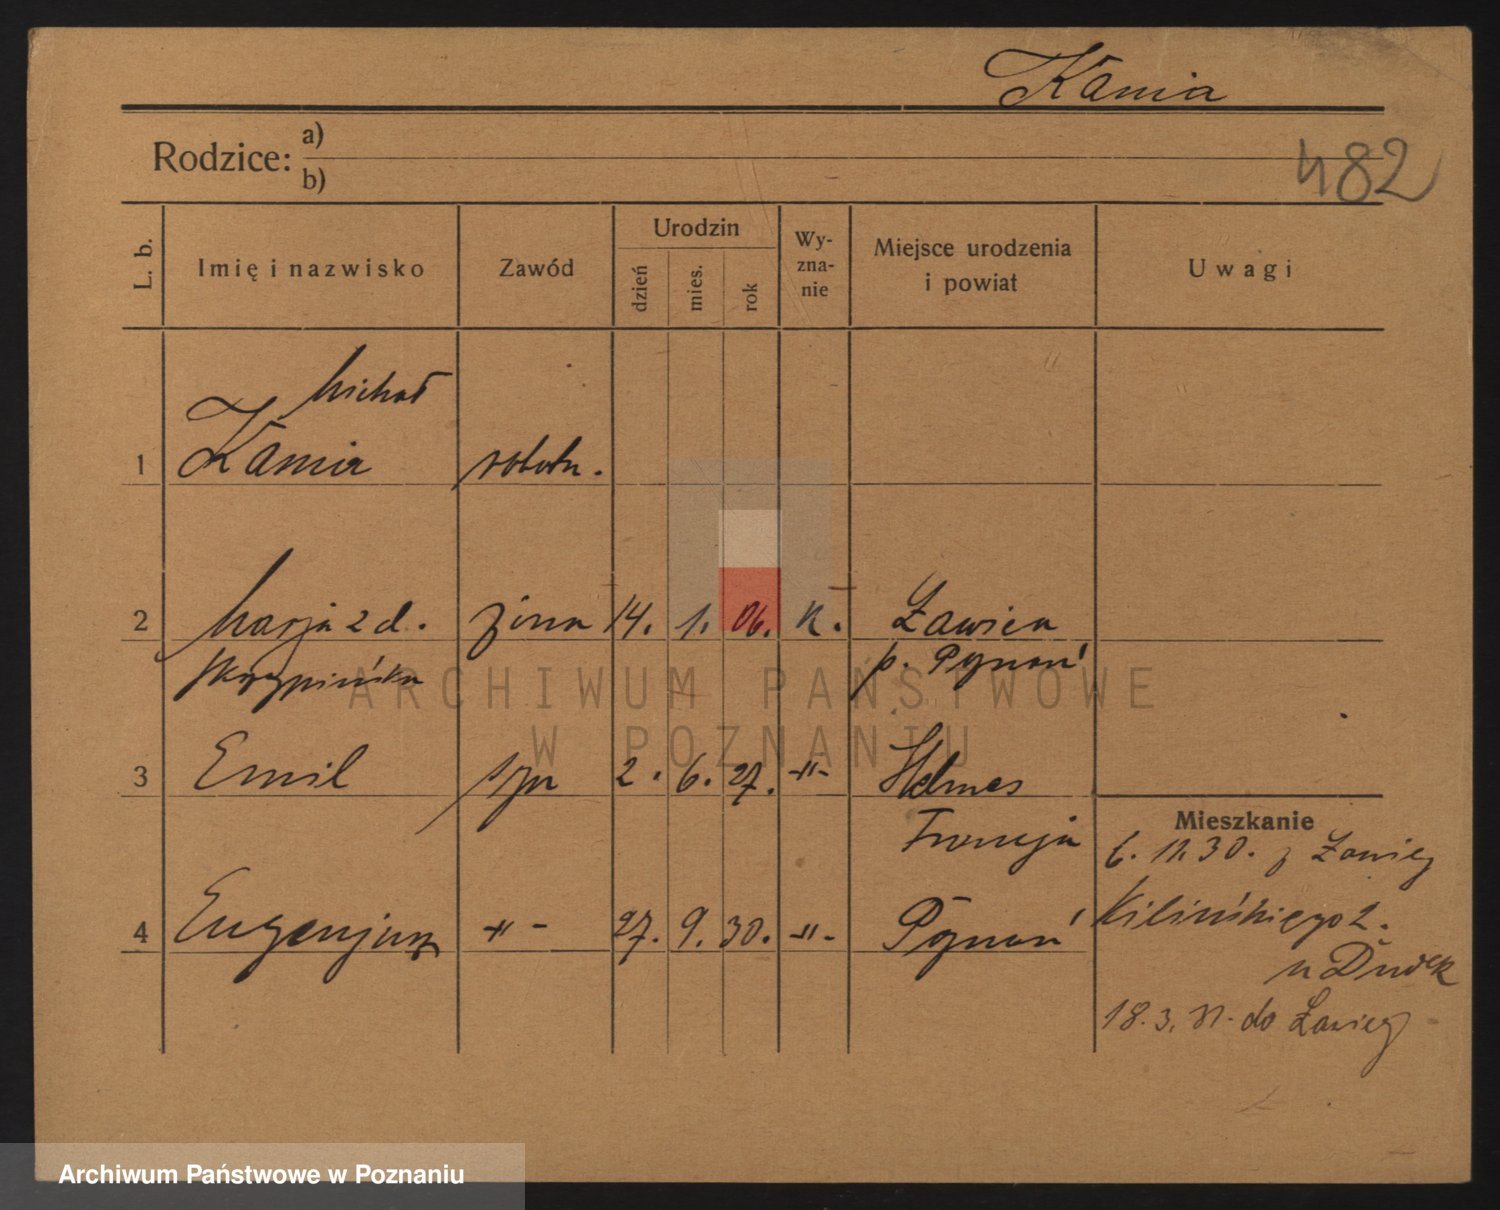 Kania
Rodzice: a)
b)
482
L. b.
Imię i nazwisko
Zawód
Urodzin
dzień
mies.
rok
Wy-
zna-
nie
Miejsce urodzenia
i powiat
Uwagi
Michał
1 Kania robotn.
2 Marja z d. żona 14. 1. 06. k. Ławica
Skrzypińska p. Poznań
3 Emil syn 2. 6. 27. -"-
Francja
Mieszkanie
6. 11. 30. z Ławicy
4 Eugenjusz -"- 27. 9. 30. -"- Poznań
Kilińskiego 2.
u Dudek
18. 3. 31. do Ławicy
ARCHIWUM PAŃSTWOWE
W POZNANIU
Archiwum Państwowe w Poznaniu